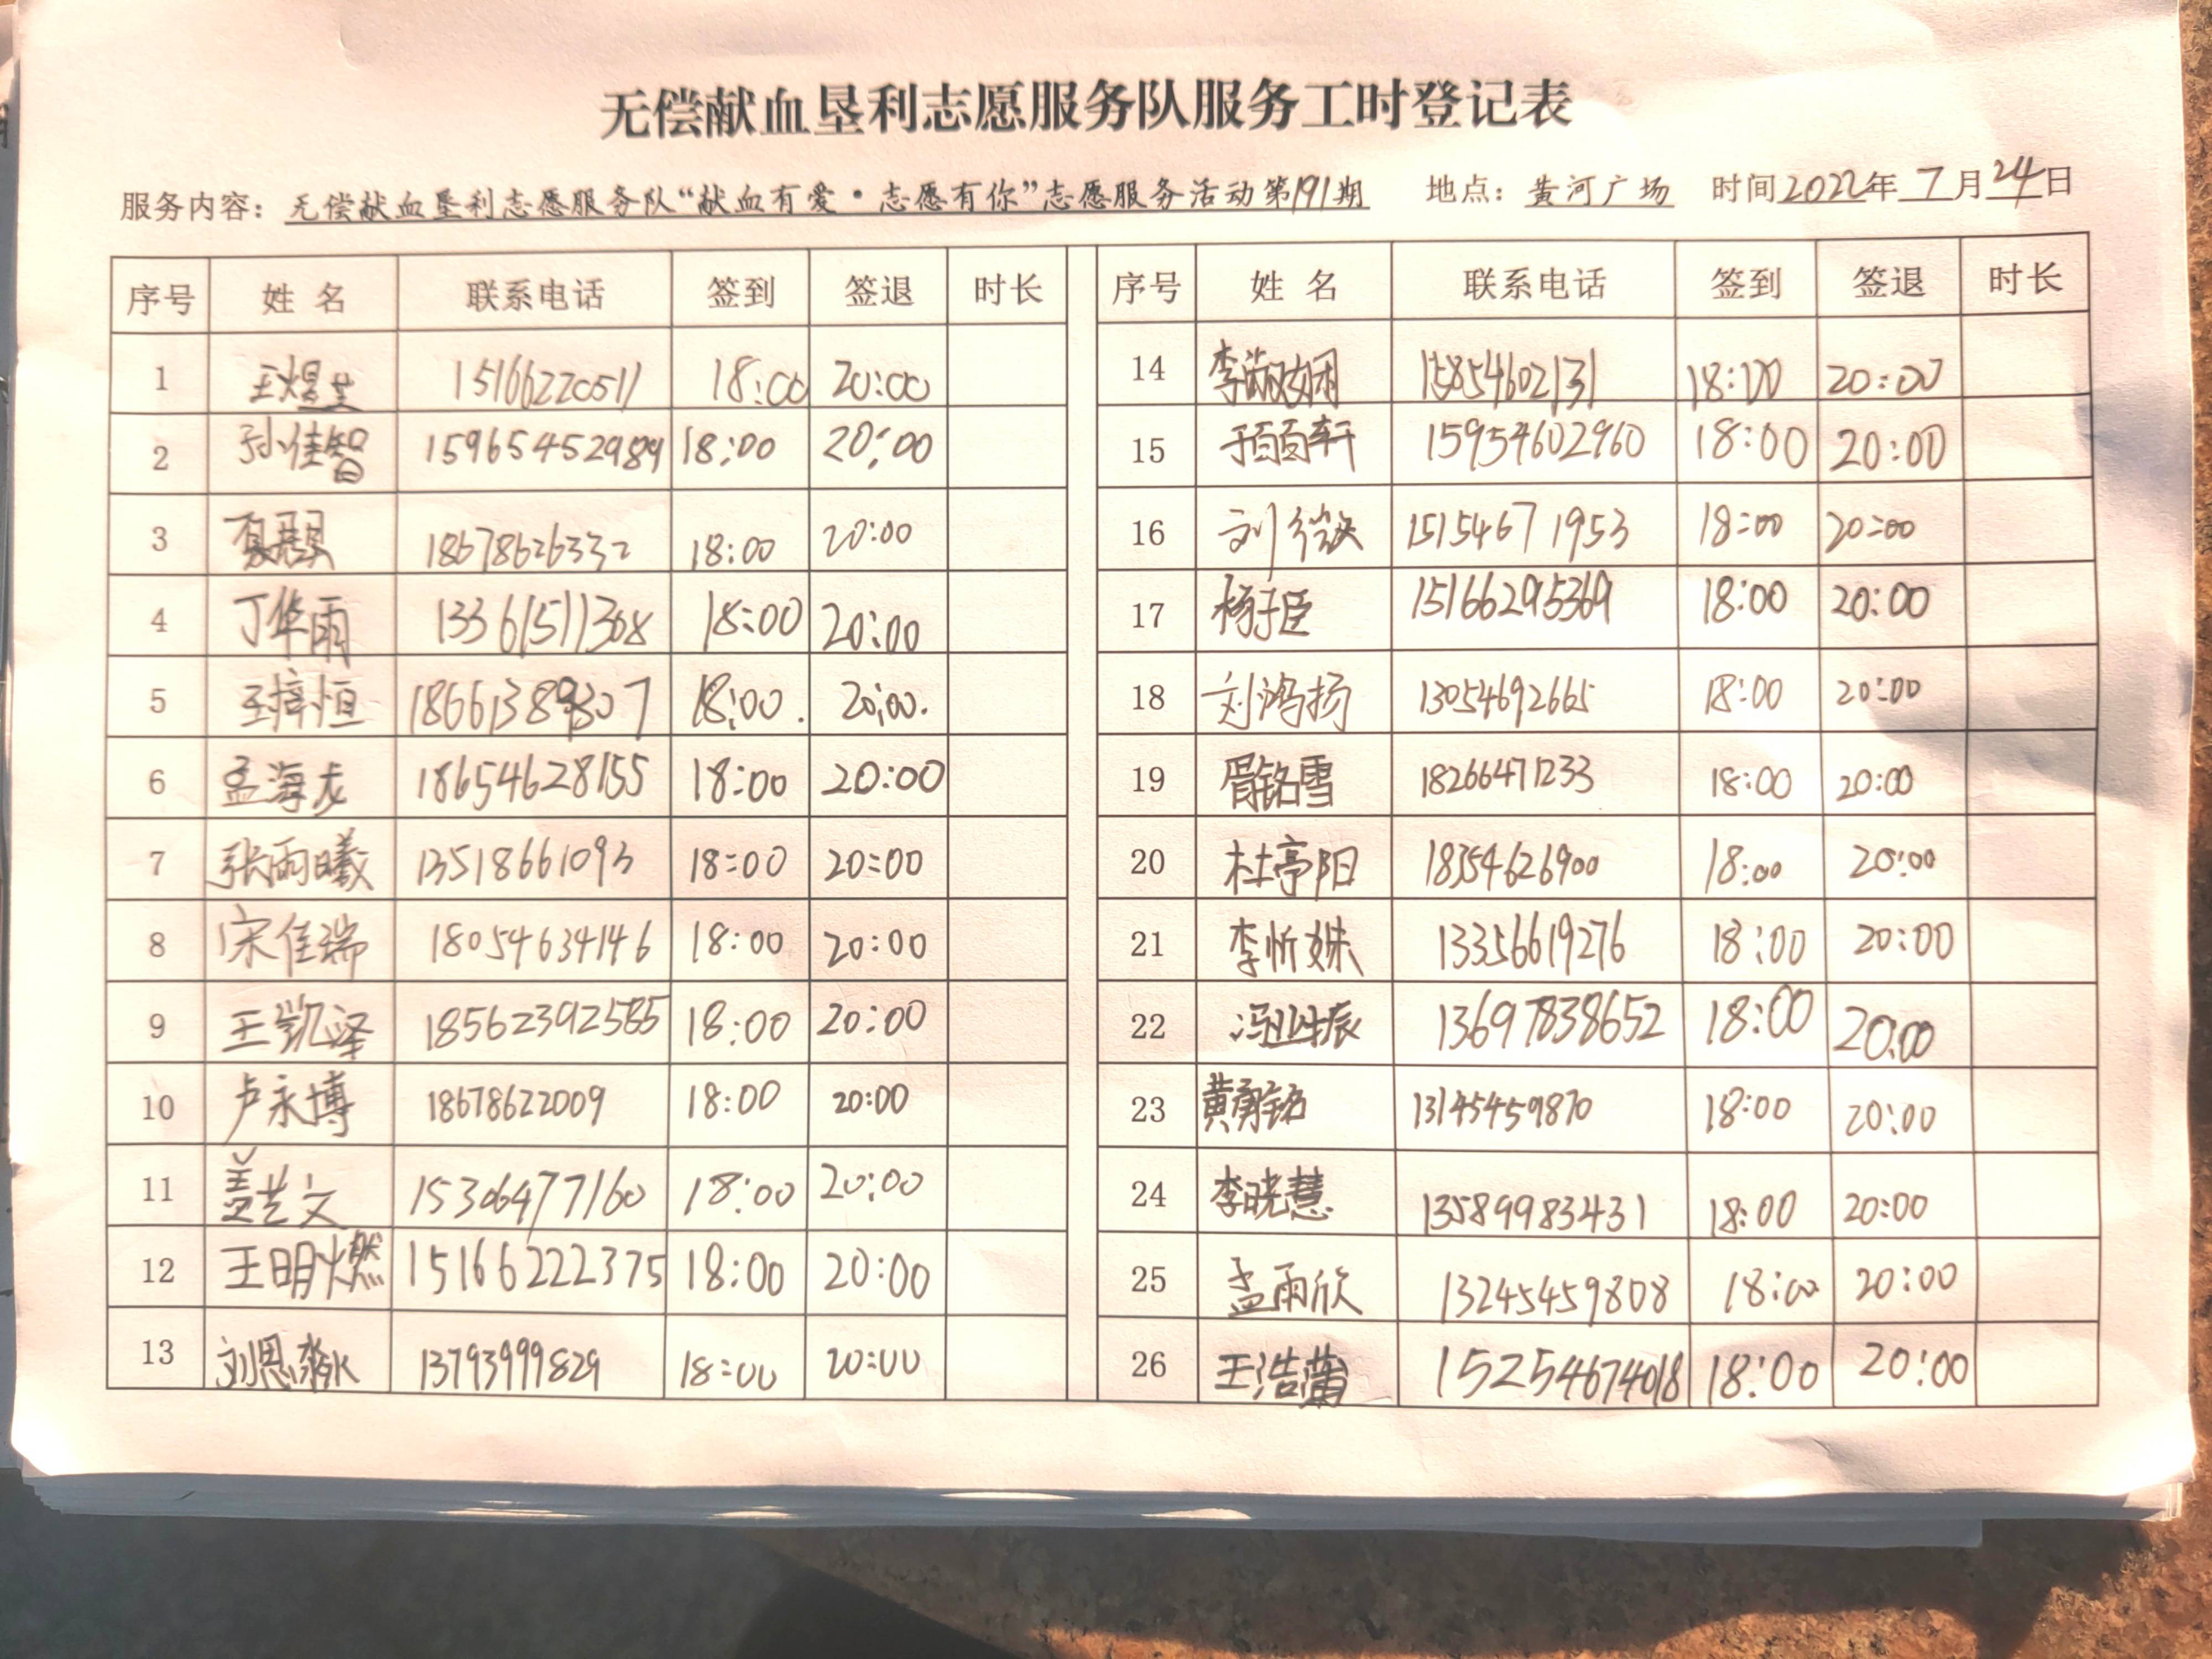 无偿献血垦利志愿服务队服务工时登记表
服务内容：无偿献血垦利志愿服务队“献血有爱·志愿有你”志愿服务活动第191期 地点：黄河广场 时间2022年7月24日
序号 姓名 联系电话 签到 签退 时长 序号 姓名 联系电话 签到 签退 时长
1 15166220511 18:00 20:00 14 15854602131 18:00 20:00
2 孙佳智 15965452989 18:00 20:00 15 15954602960 18:00 20:00
3 18678626332 18:00 20:00 16 15154671953 18:00 20:00
4 丁华雨 13361511308 18:00 20:00 17 杨于臣 15166295369 18:00 20:00
5 王梓恒 18:00. 20:00. 18 刘鸿扬 13054692665 18:00 20:00
6 孟海龙 18654628155 18:00 20:00 19 胥铭雪 18266471233 18:00 20:00
7 张雨曦 13518661093 18:00 20:00 20 杜亭阳 18354626900 18:00 20:00
8 宋佳瑞 18054634146 18:00 20:00 21 李忻姝 13356619276 18:00 20:00
9 王凯泽 18562392585 18:00 20:00 22 13697838652 18:00 20:00
10 卢永博 18678622009 18:00 20:00 23 13145459870 18:00 20:00
11 盖艺文 15306477160 18:00 20:00 24 李晓慧 13589983431 18:00 20:00
12 王明燃 15166222375 18:00 20:00 25 孟雨欣 13245459808 18:00 20:00
13 刘思淼 13793999829 18:00 20:00 26 18:00 20:00